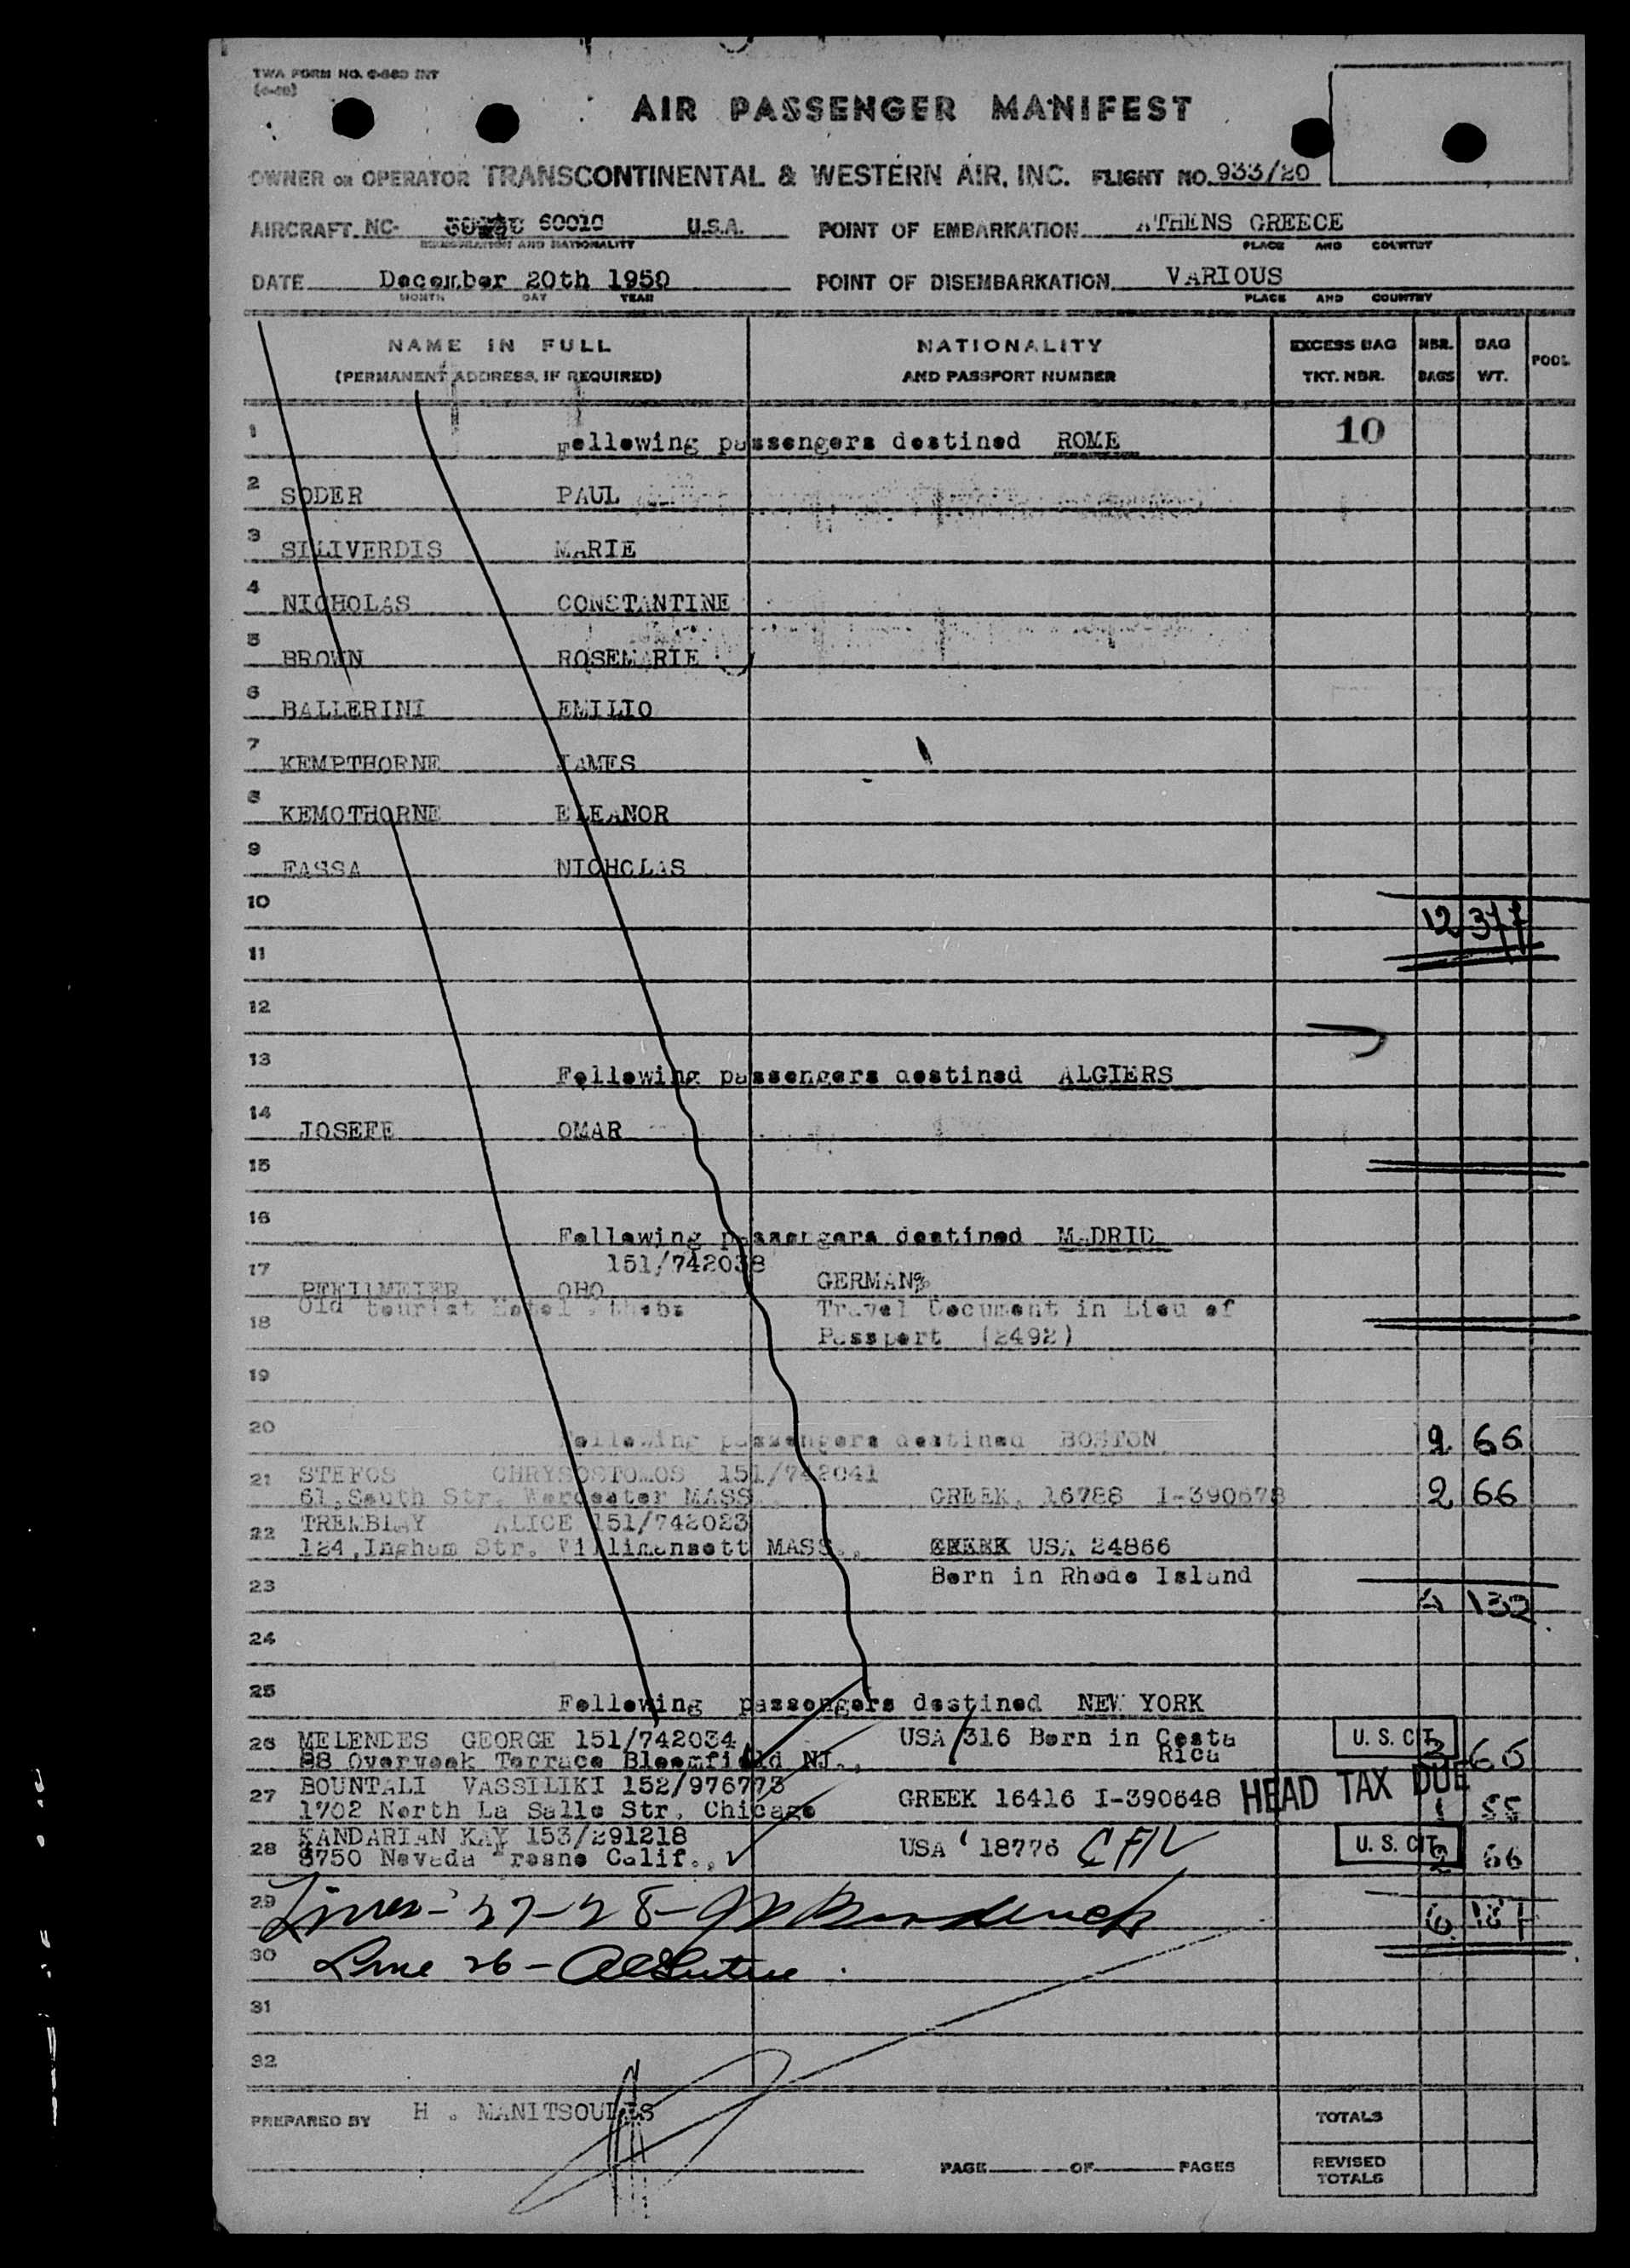 TWA FORM NO.
AIR PASSENGER MANIFEST
OWNER OR OPERATOR TRANSCONTINENTAL & WESTERN AIR, INC. FLIGHT NO. 933/20
AIRCRAFT NC- 6001C U.S.A. POINT OF EMBARKATION ATHENS GREECE
REGISTRATION AND NATIONALITY PLACE AND COUNTRY
DATE December 20th 1950 POINT OF DISEMBARKATION VARIOUS
MONTH DAY YEAR PLACE AND COUNTRY
NAME IN FULL NATIONALITY EXCESS BAG NBR. BAG POOL
(PERMANENT ADDRESS, IF REQUIRED) AND PASSPORT NUMBER TKT. NBR. BAGS WT.
1 Following passengers destined ROME 10
2 SODER PAUL
3 SILIVERDIS MARIE
4 NICHOLAS CONSTANTINE
5 BROWN ROSEMARIE
6 BALLERINI EMILIO
7 KEMPTHORNE JAMES
8 KEMOTHORNE ELEANOR
9 FASSA NICHOLAS
10 12 377
11
12
13 Following passengers destined ALGIERS
14 JOSEFE OMAR
15
16 Following passengers destined MADRID
151/742038
17 PFEILMEIER OHO GERMAN
Old tourist Hotel Travel Document in Lieu of
18 Passport (2492)
19
20 Following passengers destined BOSTON 2 66
21 STEFOS CHRYSOSTOMOS 151/742041
61,South Str. Worcester MASS. GREEK, 16788 I-390678 2 66
22 TREMBLAY ALICE 151/742023
124,Ingham Str. Willimansett MASS., GREEK USA 24866
Born in Rhode Island
23 4 132
24
25 Following passengers destined NEW YORK
26 MELENDES GEORGE 151/742034 USA 316 Born in Costa Rica U. S. CIT. 2 66
88 Overveek Terrace Bloomfield NJ.,
27 BOUNTALI VASSILIKI 152/976773 HEAD TAX DUE
1702 North La Salle Str. Chicago GREEK 16416 I-390648 1 55
28 KANDARIAN KAY 153/291218 USA 18776 U. S. CIT. 2 66
3750 Nevada Fresno Calif.,
29 Lines - 27-28-
6 187
30 Line 26 -
31
32
PREPARED BY H . MANITSOUDIS TOTALS
PAGE OF PAGES REVISED TOTALS